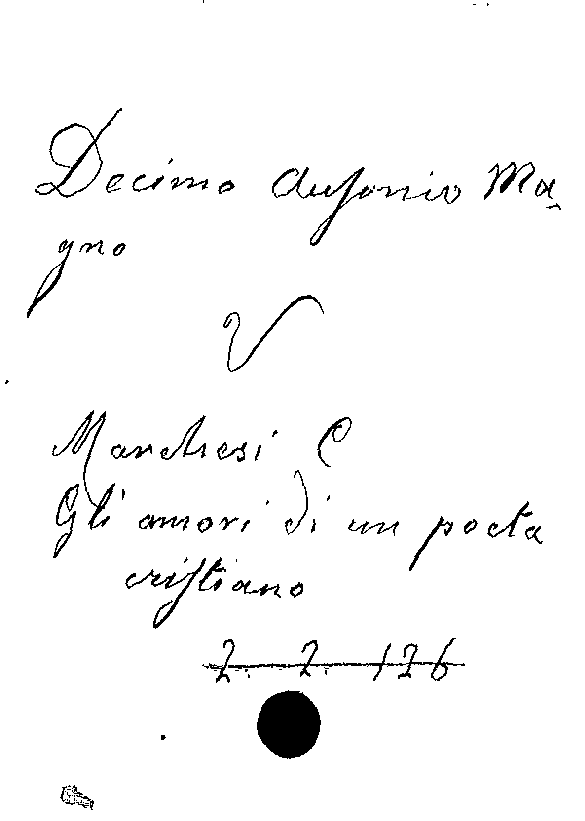 Decimo Ausonio Ma-
gno
V
Marchesi C
Gli amori di un poeta
cristiano
2. 2. 126